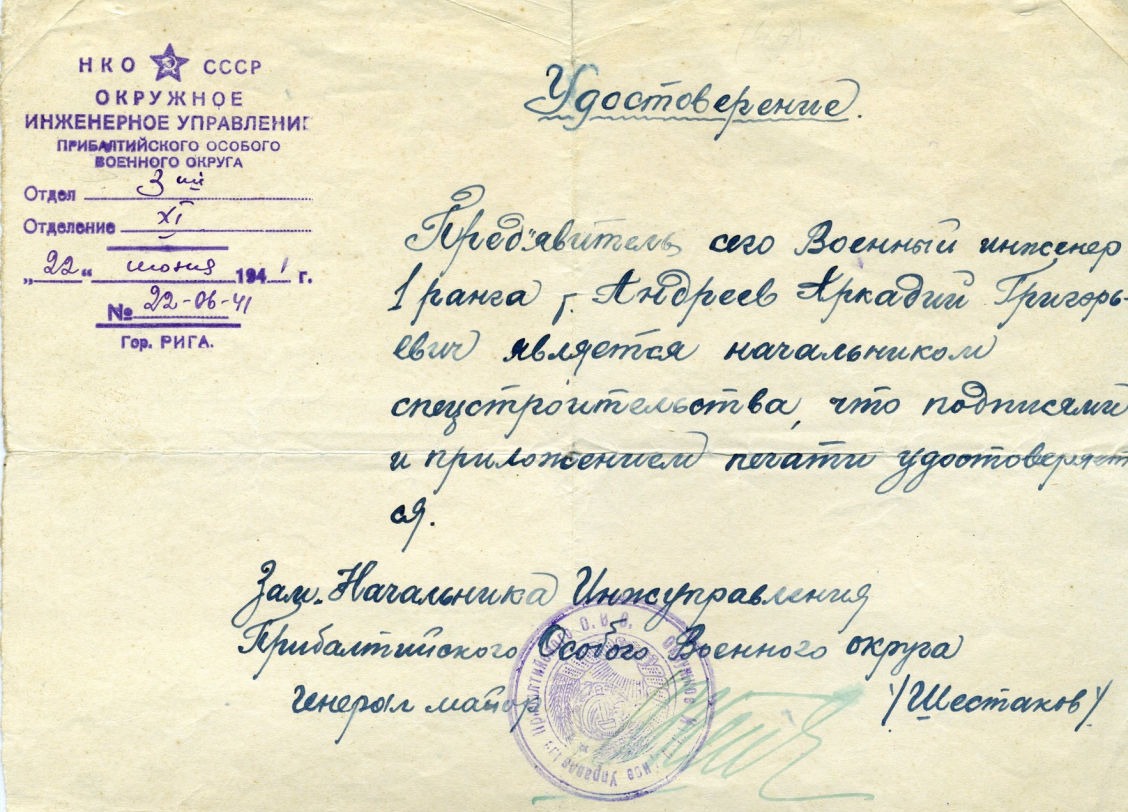 НКО СССР
ОКРУЖНОЕ
ИНЖЕНЕРНОЕ УПРАВЛЕНИЕ
ПРИБАЛТИЙСКОГО ОСОБОГО
ВОЕННОГО ОКРУГА
Отдел 3ий
Отделение XI
„22“ июня 1941 г.
№ 22-06-41
Гор. РИГА.
Удостоверение.
Пред'явитель сего Военный инженер
1 ранга т. Андреев Аркадий Григорь-
евич является начальником
спецстроительства, что подписями
и приложением печати удостоверяет
ся.
Зам. Начальника Инжуправления
Прибалтийского Особого Военного округа
генерал майор /Шестаков/
Прибалтийского О.В.О. Окружное Управление